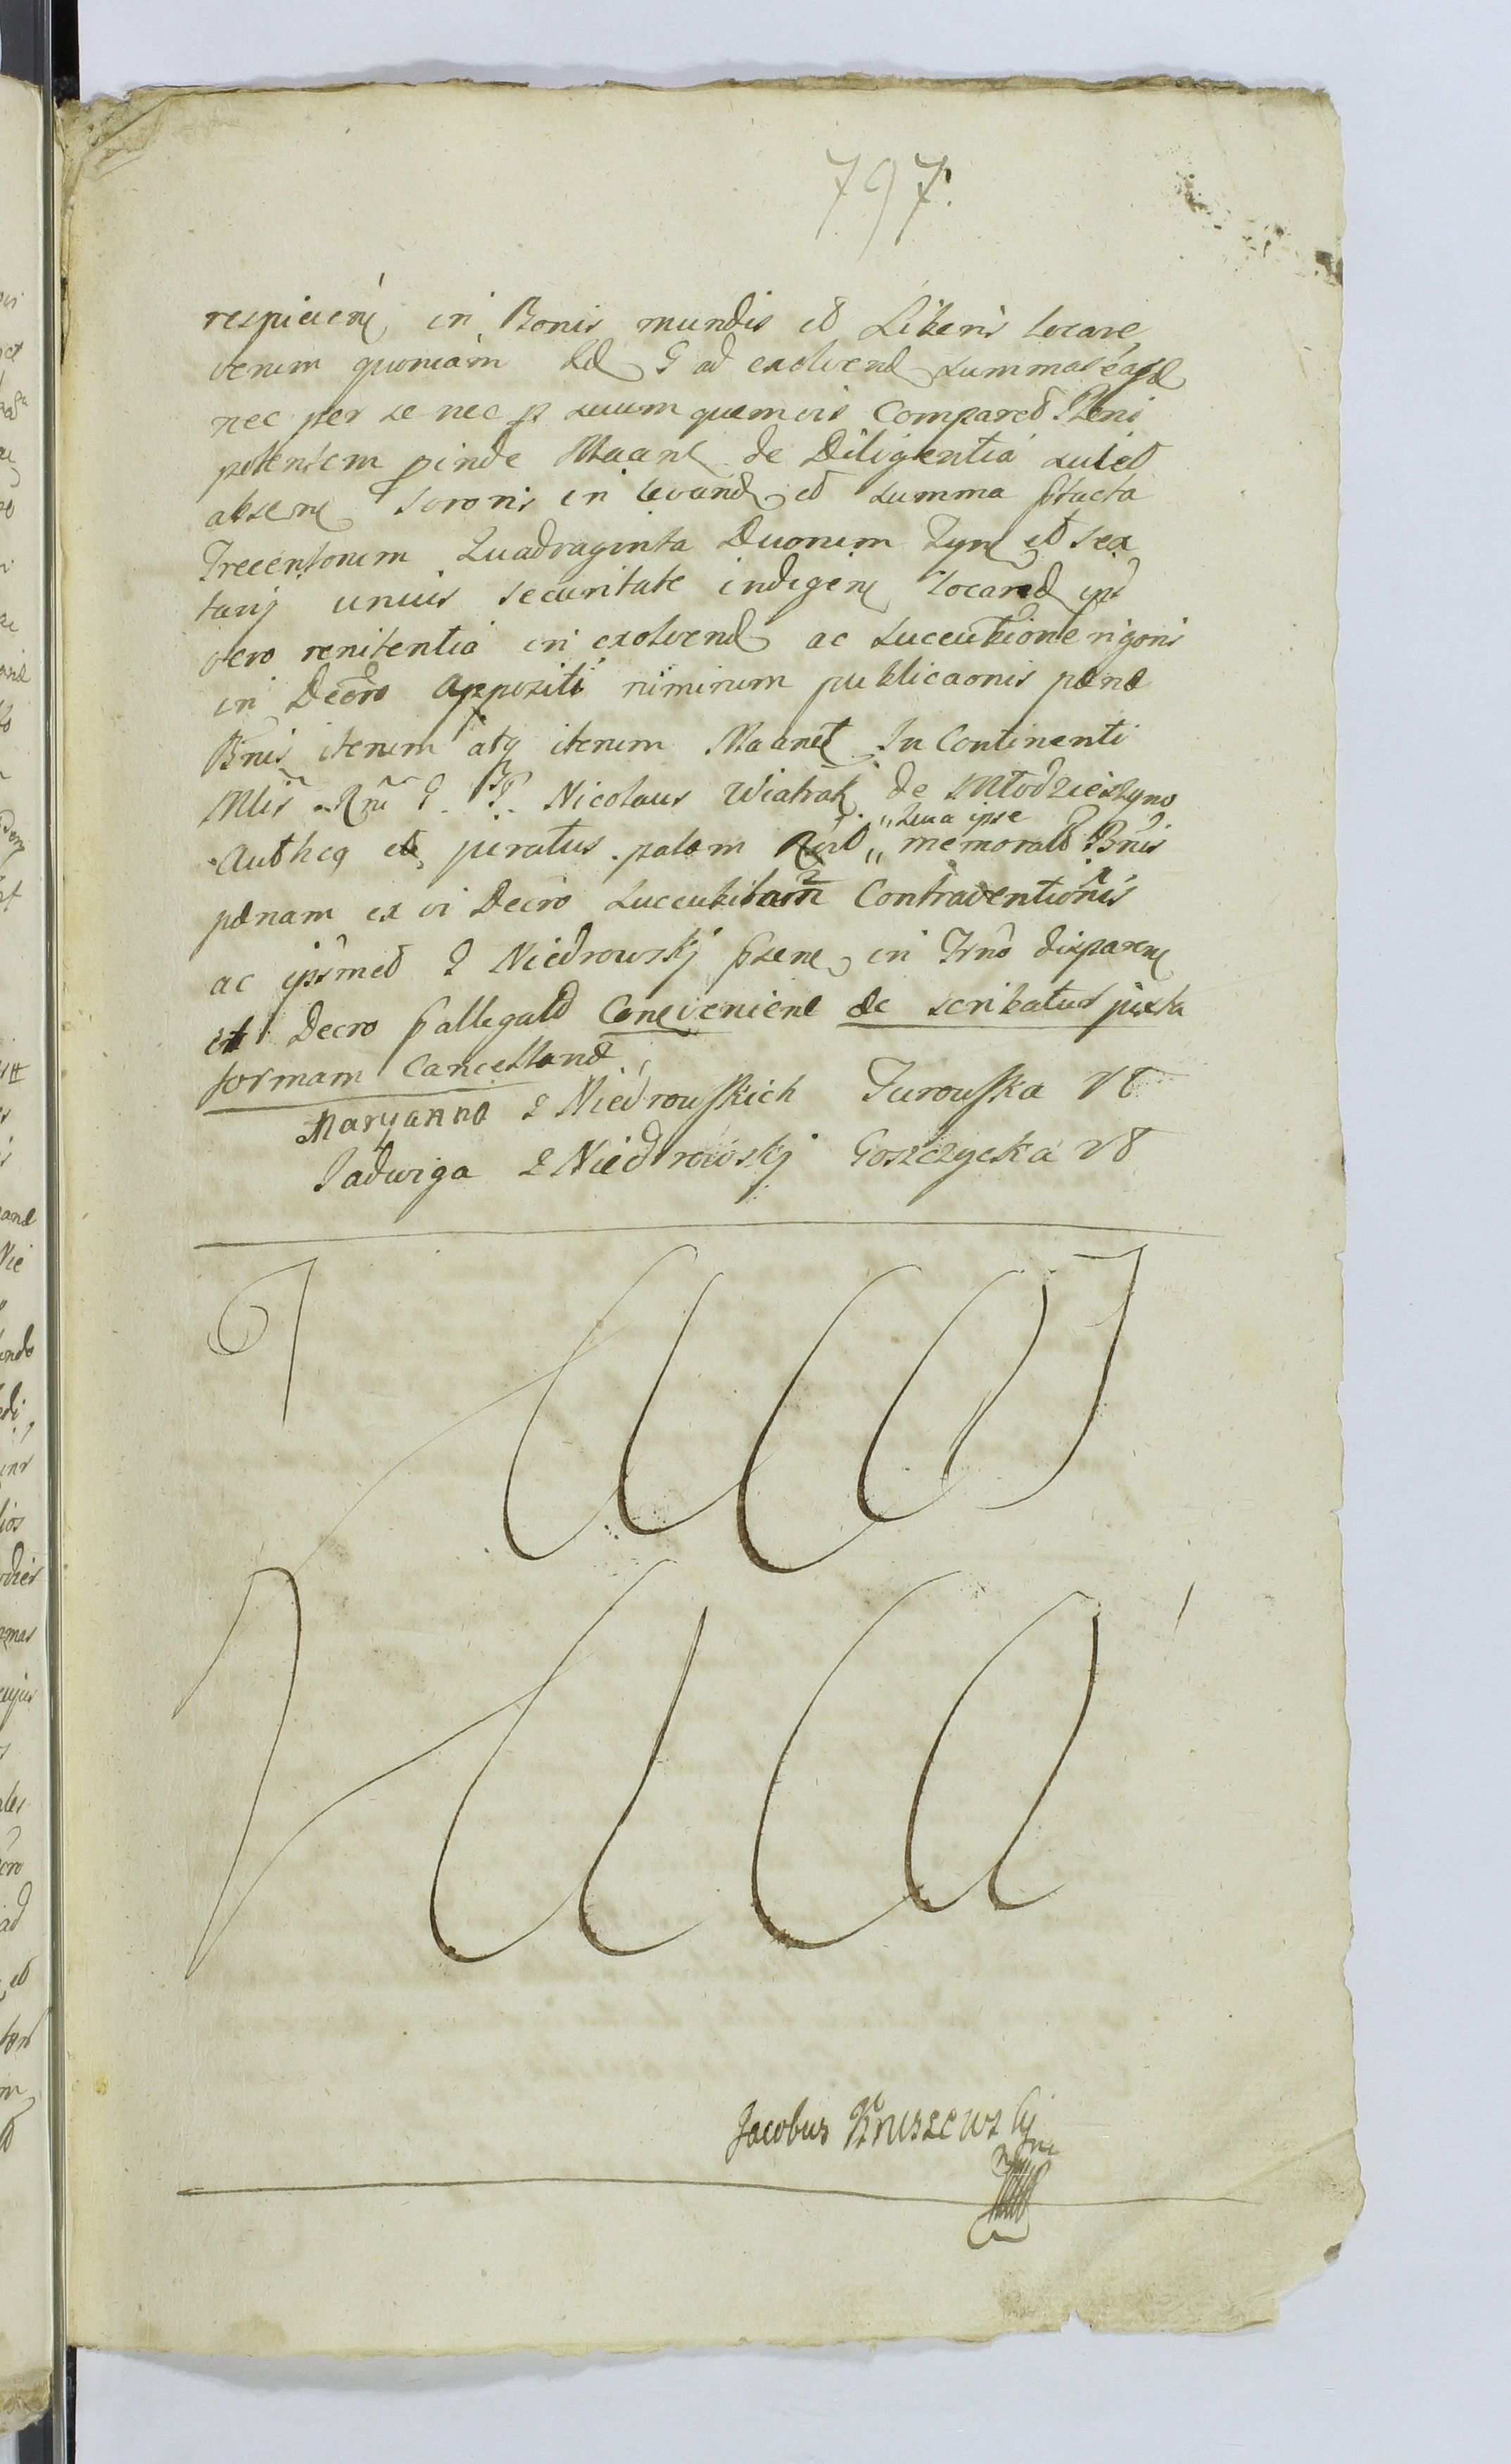 797.
respicien in Bonis mundis et Liberis locare
verum quoniam G ad exolvend summas
nec per se nec p suum quemvis Compared Pleni
potentem pinde Maand de Diligentia sui et
absene sororis in levand et summa ptacta
Trecentorum Quadraginta Duorum Tymf et sex
tarij unius securitate indigen locared
vero renitentia in exolvend ac succubitione rigoris
in Decro Appositi niminum publicaonis pænæ
Bnis iterum atq iterum Maaned In Continenti
Mlis Nicolaus Wiatrak de Młodzieszyno
Authcq et juratus palam „memorato Bnis
„sua ipse
pænam ex vi Decro succubitam Contraventionis
ac ipsimed Niedrowskj psene in Trno disparen
et Decro pallegato Conqveniene de scribatur juxta
formam Cancelland
Maryanna z Niedrowskich Turowska
Jadwiga z Niedrowskj Goszczycka
Jacobus Kruszewskj